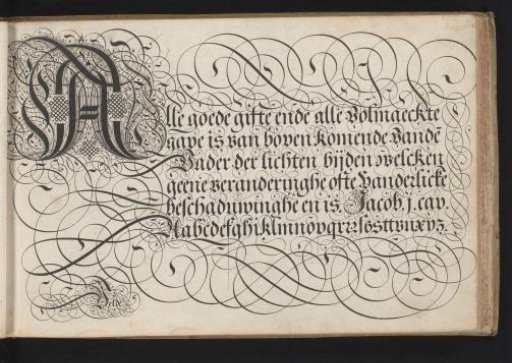 Alle goede gifte ende alle Volmaeckte
gave is van boven komende Vandē
Vader der lichten bijden welcken
geene veranderinghe ofte Vanderlicke
beschaduwinghe en is. Jacob. j. cap.
Aabcdefghiklmnopqrrsssttvuxyz.
Velde.